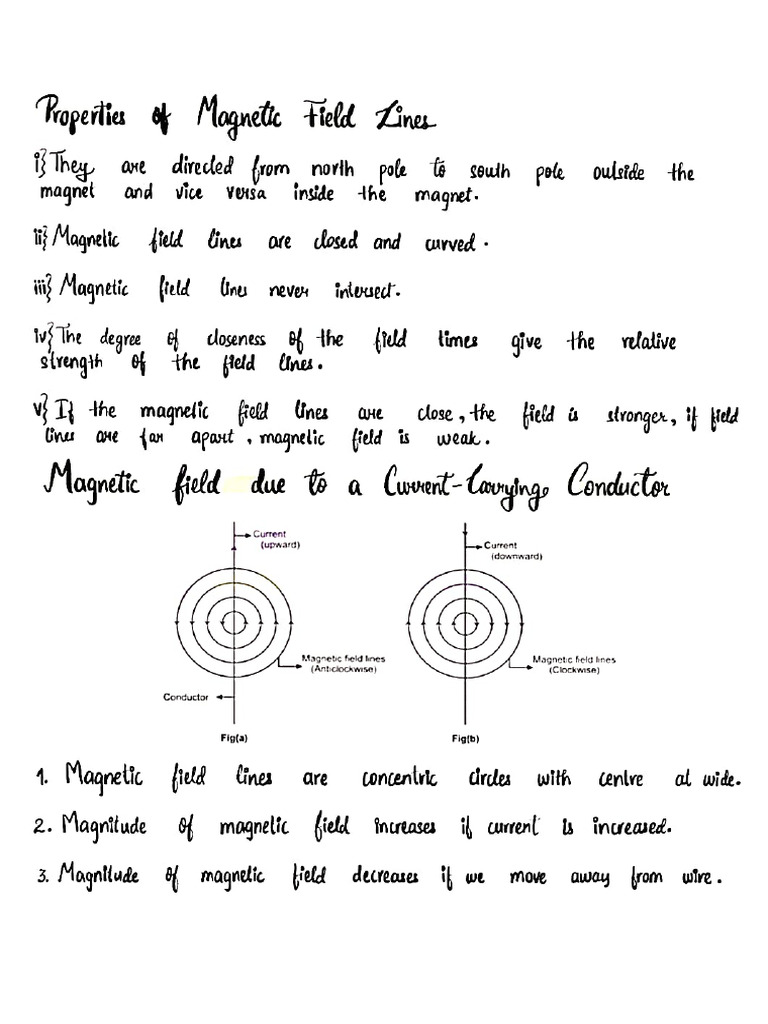 Properties of Magnetic Field Lines
i} They are directed from north pole to south pole outside the
magnet and vice versa inside the magnet.
ii} Magnetic field lines are closed and curved.
iii} Magnetic field lines never intersect.
iv} The degree of closeness of the field times give the relative
strength of the field lines.
v} If the magnetic field lines are close, the field is stronger, if field
lines are far apart, magnetic field is weak.
Magnetic field due to a Current-Carrying Conductor
Current
(upward)
Magnetic field lines
(Anticlockwise)
Conductor
Fig(a)
Current
(downward)
Magnetic field lines
(Clockwise)
Fig(b)
1. Magnetic field lines are concentric circles with centre at wide.
2. Magnitude of magnetic field increases if current is increased.
3. Magnitude of magnetic field decreases if we move away from wire.